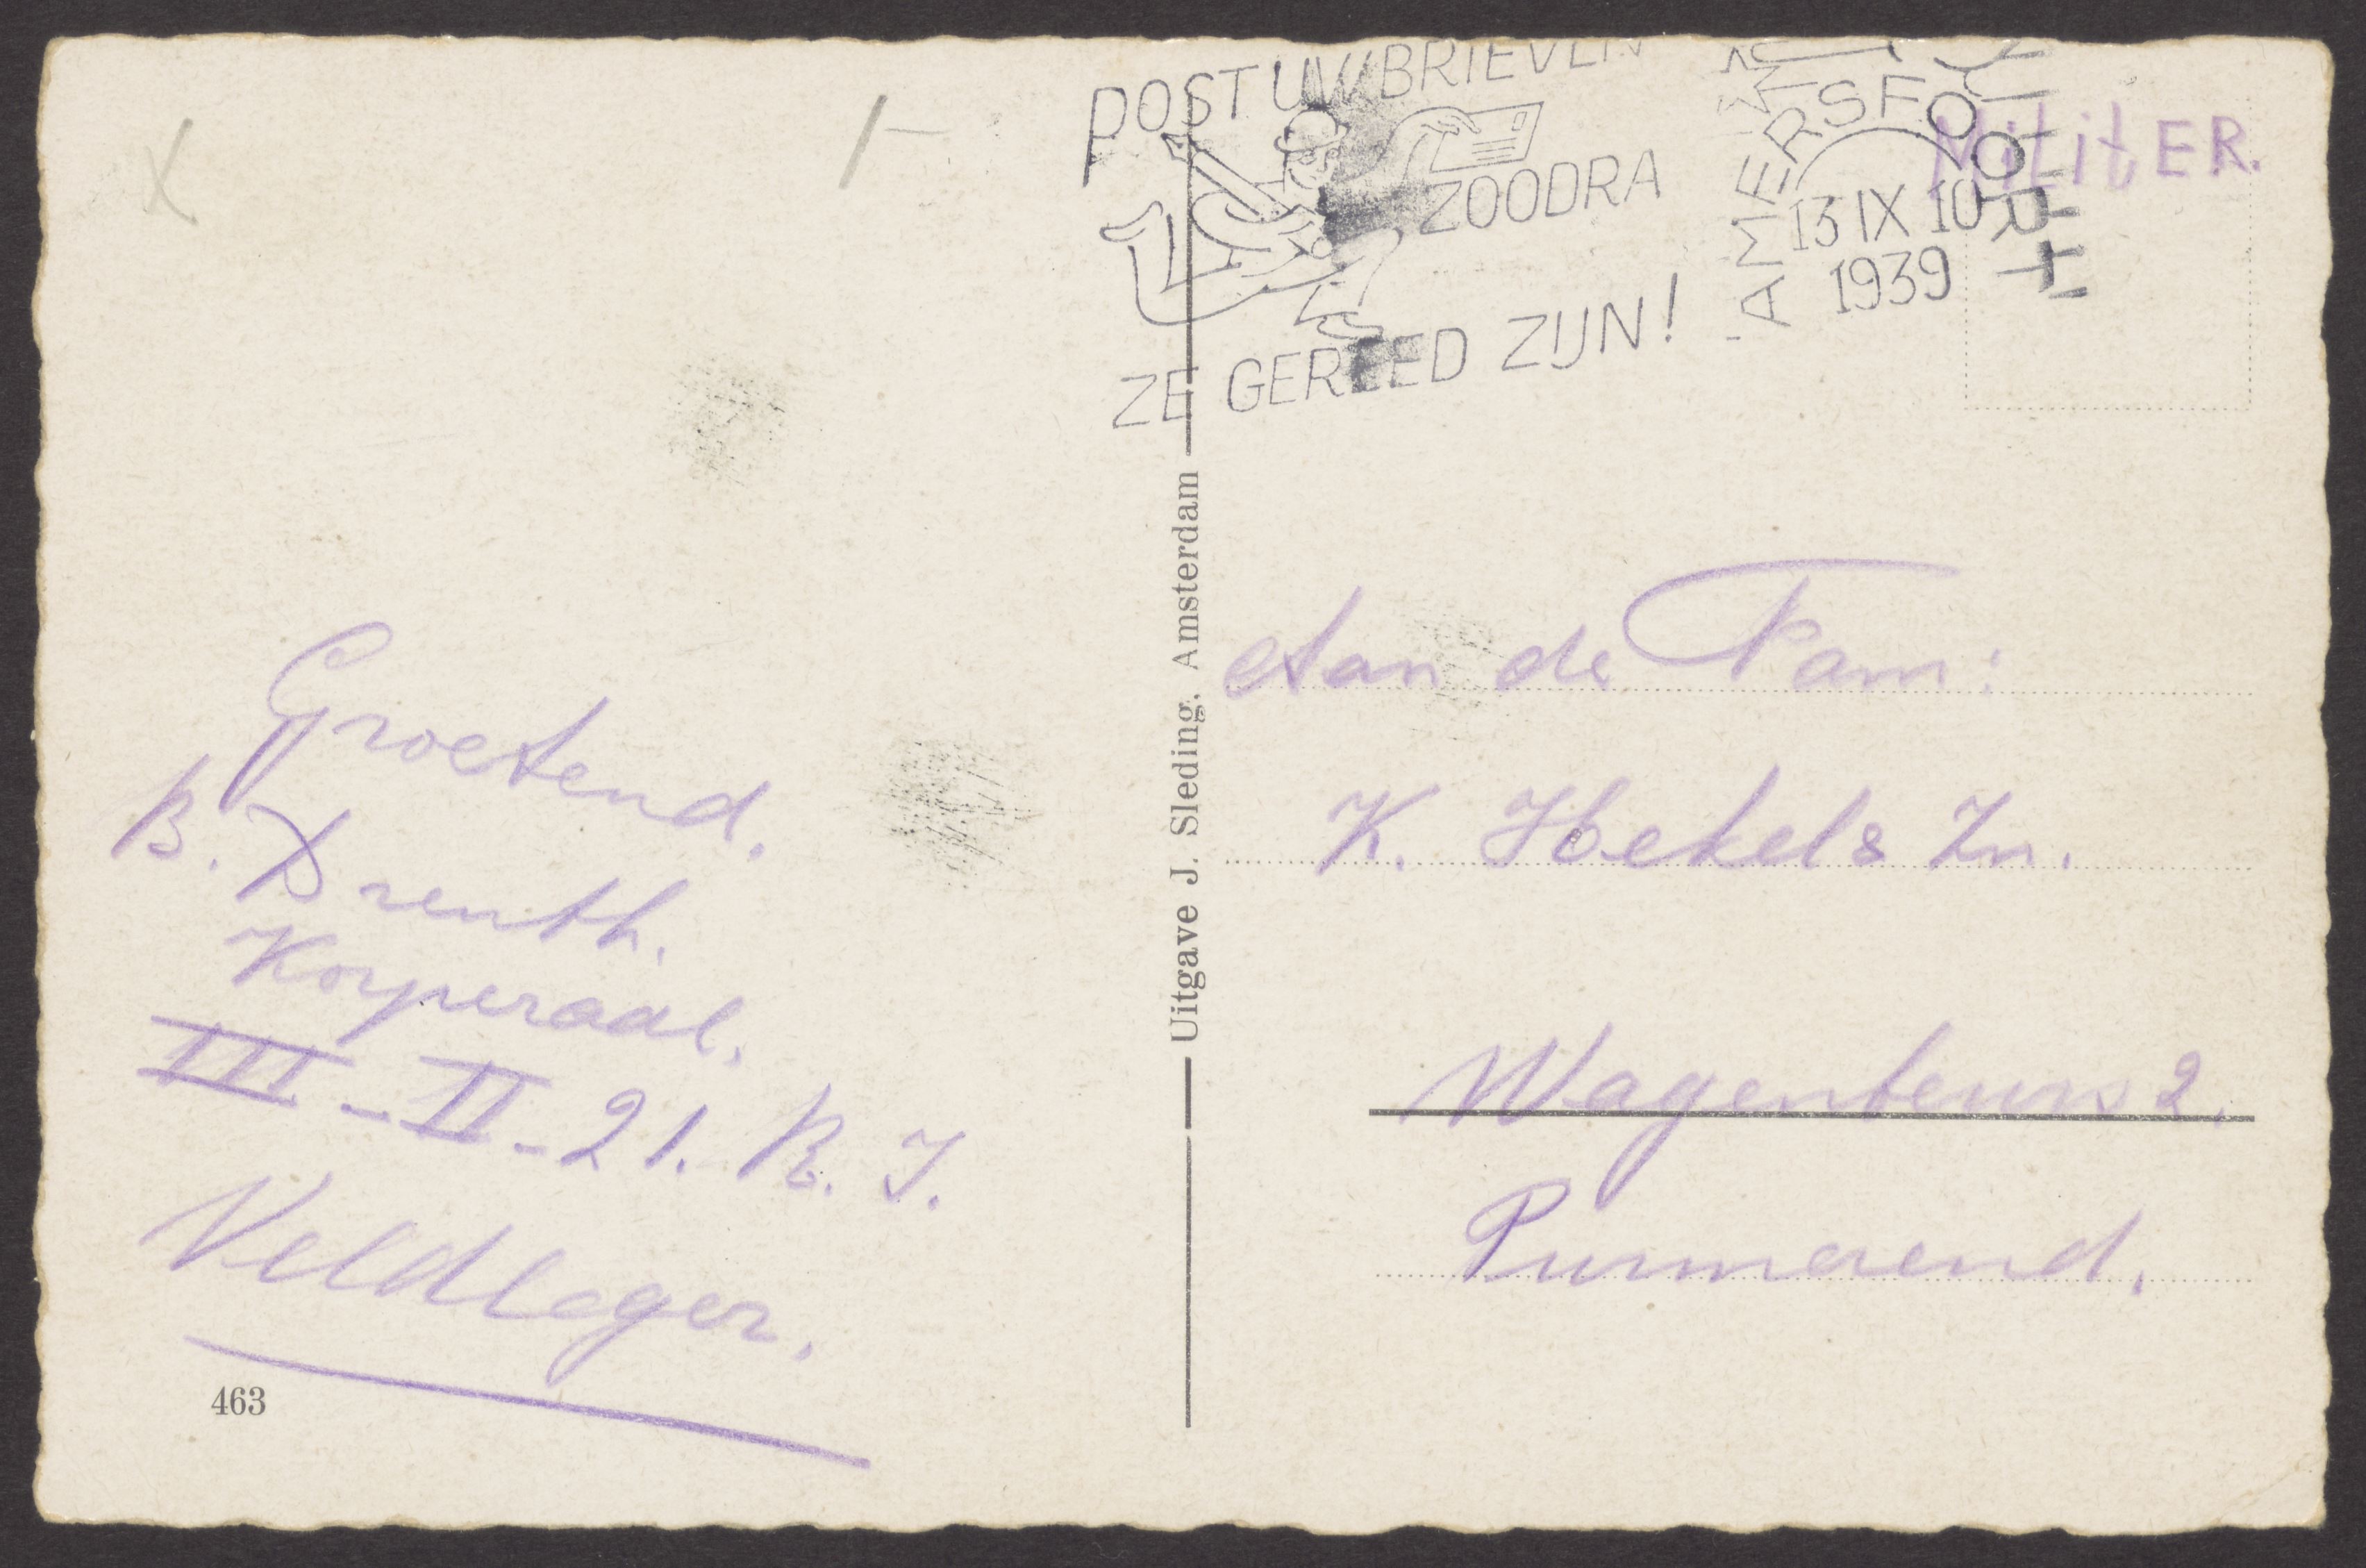 X
1-
POST UW BRIEVEN
ZOODRA
ZE GEREED ZIJN!
AMERSFOORT
13 IX 10
1939
MilitER.
Groetend.
B. Drenth.
Korperaal.
III - II - 21. R. I.
Veldleger.
463
Uitgave J. Sleding, Amsterdam
Aan de Fam:
K. Hekels Zn.
Wagenbeurs 2.
Purmerend.